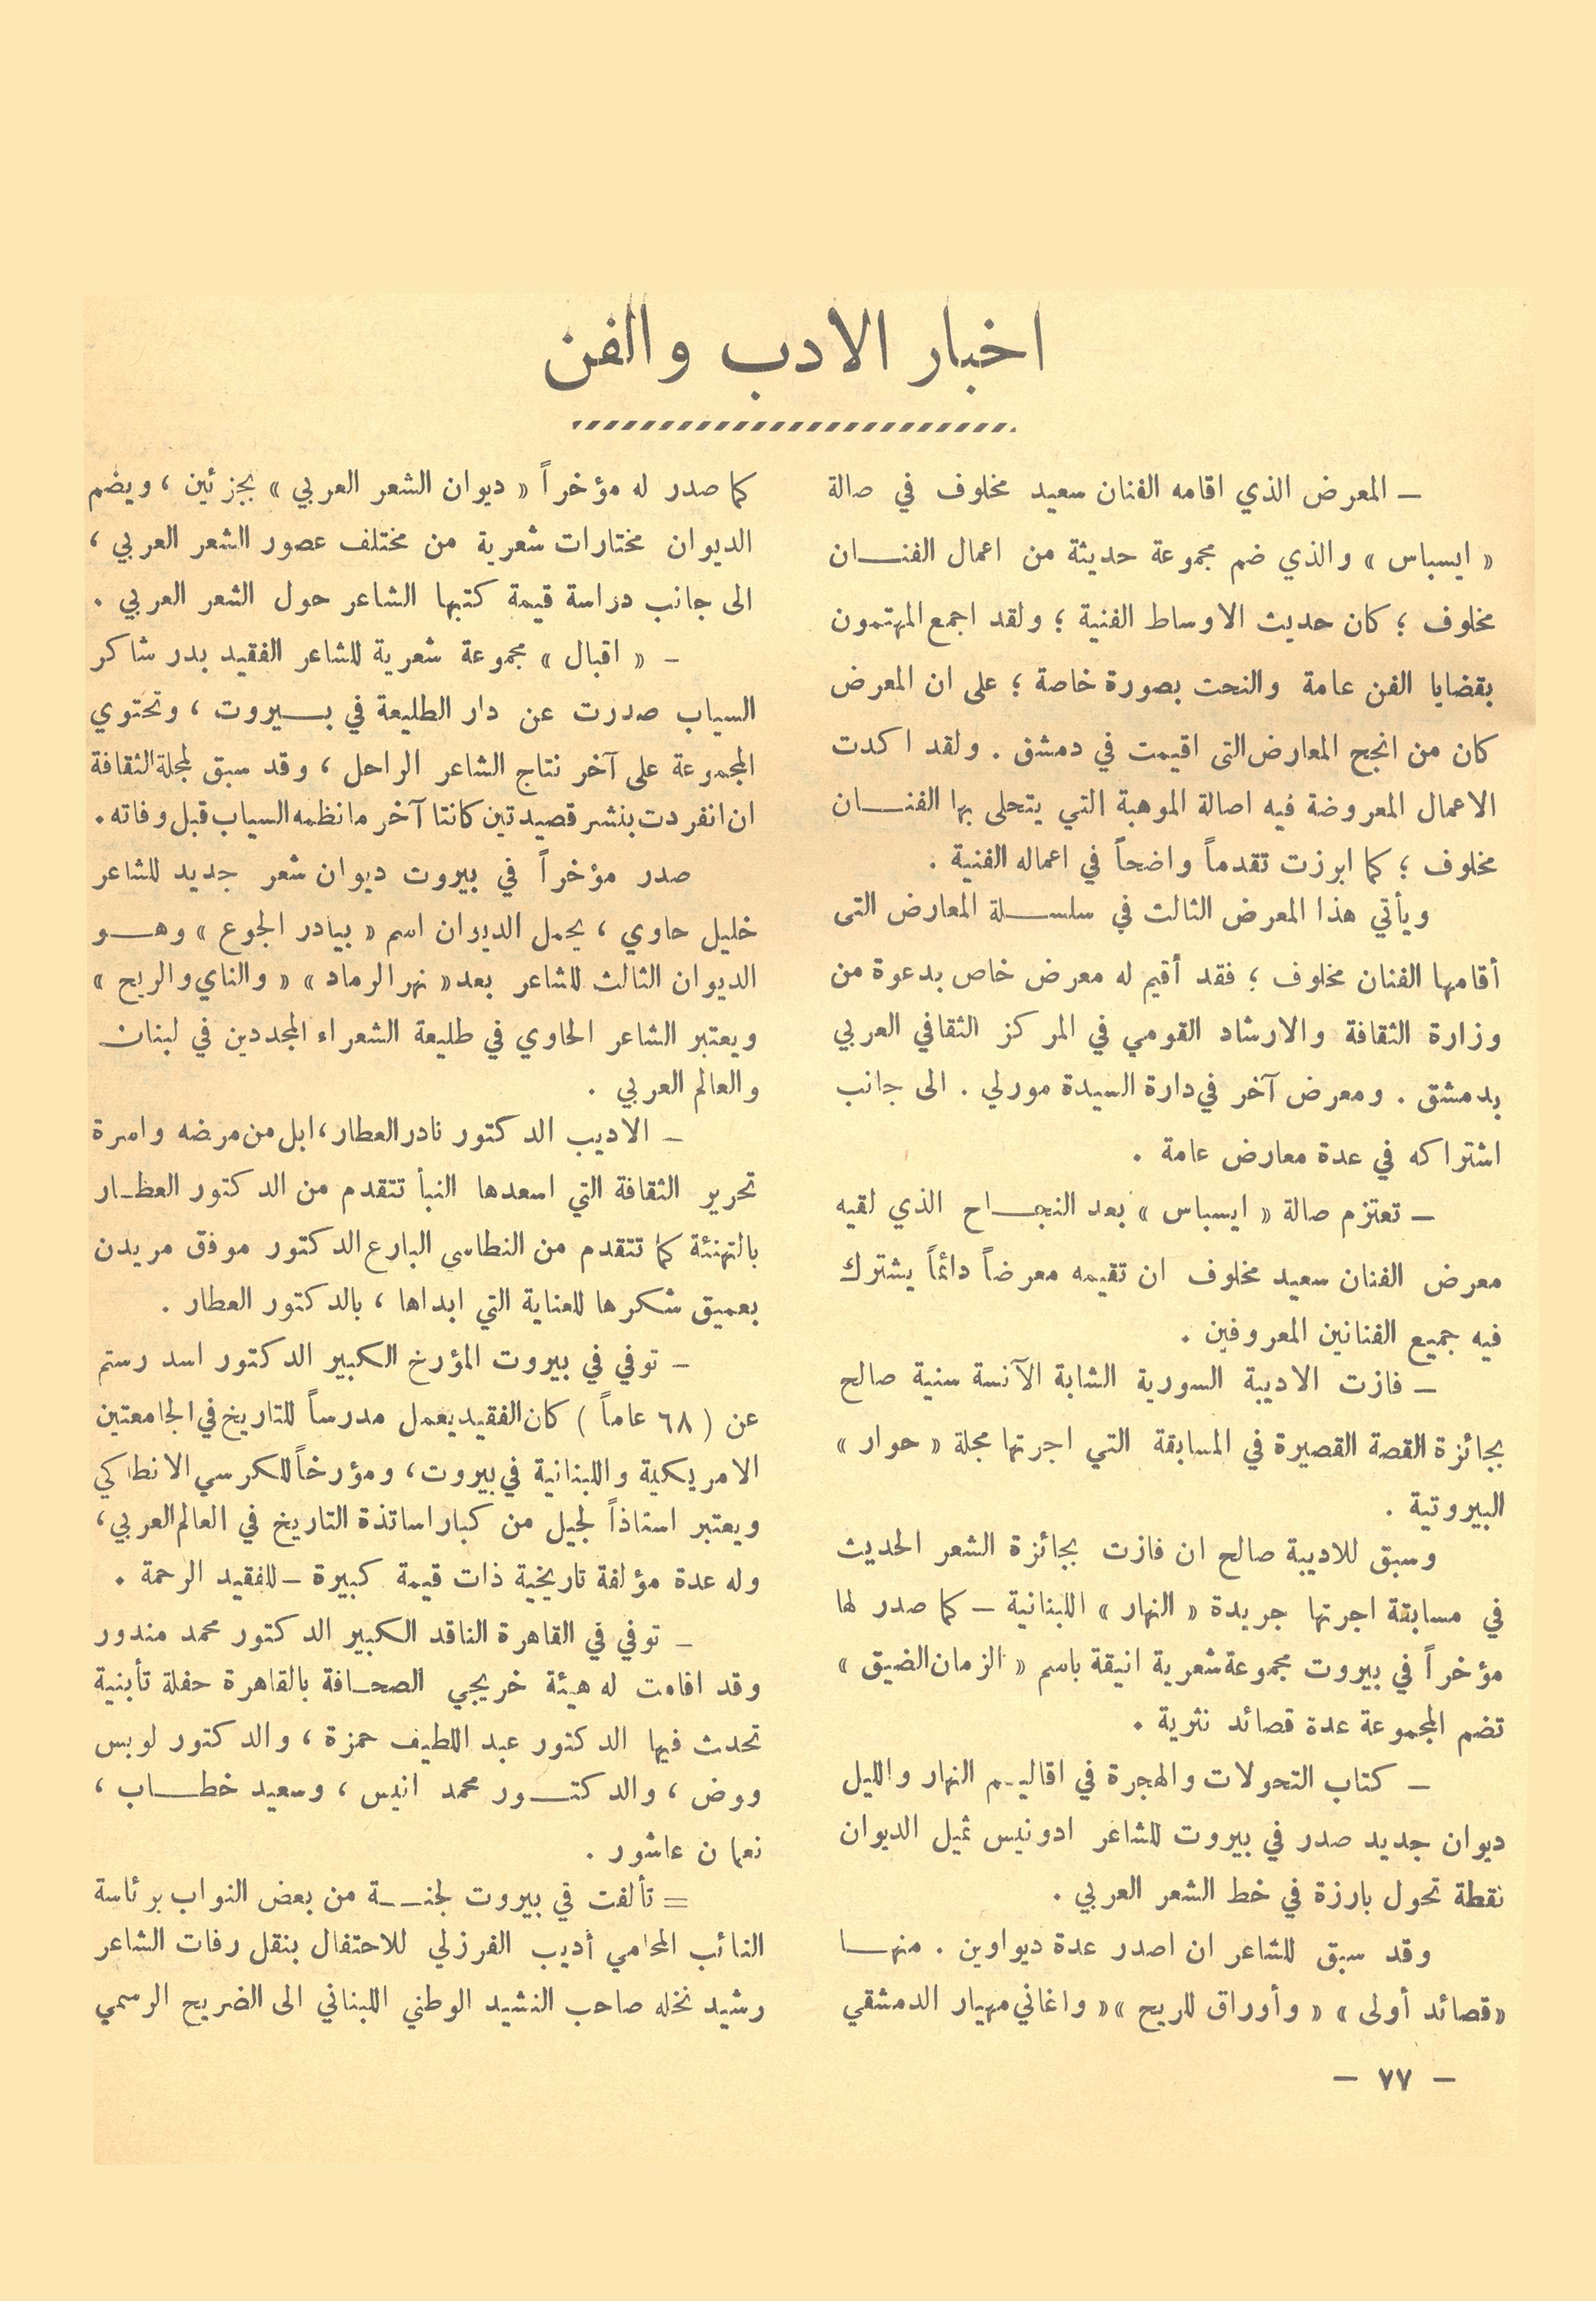 اخبار الادب والفن
– المعرض الذي اقامه الفنان سعيد مخلوف في صالة
« ايسباس » والذي ضم مجموعة حديثة من اعمال الفنـــان
مخلوف ؛ كان حديث الاوساط الفنية ؛ ولقد اجمع المهتمون
بقضايا الفن عامة والنحت بصورة خاصة ؛ على ان المعرض
كان من انجح المعارض التى اقيمت في دمشق . ولقد اكدت
الاعمال المعروضة فيه اصالة الموهبة التي يتحلى بها الفنـــان
مخلوف ؛ كما ابرزت تقدماً واضحاً في اعماله الفنية .
ويأتي هذا المعرض الثالث في سلســـلة المعارض التى
أقامها الفنان مخلوف ؛ فقد أقيم له معرض خاص بدعوة من
وزارة الثقافة والارشاد القومي في المركز الثقافي العربي
بدمشق . ومعرض آخر في دارة السيدة مورلي . الى جانب
اشتراكه في عدة معارض عامة .
– تعتزم صالة « ايسباس » بعد النجـــاح الذي لقيه
معرض الفنان سعيد مخلوف ان تقيمه معرضاً دائماً يشترك
فيه جميع الفنانين المعروفين .
– فازت الاديبة السورية الشابة الآنسة سنية صالح
بجائزة القصة القصيرة في المسابقة التي اجرتها مجلة « حوار »
البيروتية .
وسبق للاديبة صالح ان فازت بجائزة الشعر الحديث
في مسابقة اجرتها جريدة « النهار » اللبنانية – كما صدر لها
مؤخراً في بيروت مجموعة شعرية انيقة باسم « الزمان الضيق »
تضم المجموعة عدة قصائد نثرية .
– كتاب التحولات والهجرة في اقاليـم النهار والليل
ديوان جديد صدر في بيروت للشاعر ادونيس تميل الديوان
نقطة تحول بارزة في خط الشعر العربي .
وقد سبق للشاعر ان اصدر عدة ديواوين . منهـــا
« قصائد أولى » « وأوراق للريح » « واغاني مهيار الدمشقي
كما صدر له مؤخراً « ديوان الشعر العربي » بجزئين ، ويضم
الديوان مختارات شعرية من مختلف عصور الشعر العربي ،
الى جانب دراسة قيمة كتبها الشاعر حول الشعر العربي .
– « اقبال » مجموعة شعرية للشاعر الفقيد بدر شاكر
السياب صدرت عن دار الطليعة في بـــيروت ، وتحتوي
المجموعة على آخر نتاج الشاعر الراحل ، وقد سبق لمجلة الثقافة
ان انفردت بنشر قصيدتين كانتا آخر ما نظمه السياب قبل وفاته .
صدر مؤخراً في بيروت ديوان شعر جديد للشاعر
خليل حاوي ، يحمل الديوان اسم « بيادر الجوع » وهـــو
الديوان الثالث للشاعر بعد « نهر الرماد » « والناي والريح »
ويعتبر الشاعر الحاوي في طليعة الشعراء المجددين في لبنان
والعالم العربي .
– الاديب الدكتور نادر العطار ، ابل من مرضه واسرة
تحرير الثقافة التي اسعدها النبأ تتقدم من الدكتور العطـار
بالتهنئة كما تتقدم من النطاسي البارع الدكتور موفق مريدن
بعميق شكرها للعناية التي ابداها ، بالدكتور العطار .
– توفي في بيروت المؤرخ الكبير الدكتور اسد رستم
عن ( ٦٨ عاماً ) كان الفقيد يعمل مدرساً للتاريخ في الجامعتين
الامريكية واللبنانية في بيروت ، ومؤرخاً للكرسي الانطاكي
ويعتبر استاذاً لجيل من كبار اساتذة التاريخ في العالم العربي ،
وله عدة مؤلفة تاريخية ذات قيمة كبيرة – للفقيد الرحمة .
– توفي في القاهرة الناقد الكبير الدكتور محمد مندور
وقد اقامت له هيئة خريجي الصحـافة بالقاهرة حفلة تأبنية
تحدث فيها الدكتور عبد اللطيف حمزة ، والدكتور لويس
ووض ، والدكتـــور محمد انيس ، وسعيد خطـــاب ،
نعمان عاشور .
= تألفت في بيروت لجنـــة من بعض النواب برئاسة
النائب المحامي أديب الفرزلي للاحتفال بنقل رفات الشاعر
رشيد نخله صاحب النشيد الوطني اللبناني الى الضريح الرسمي
– ٧٧ –